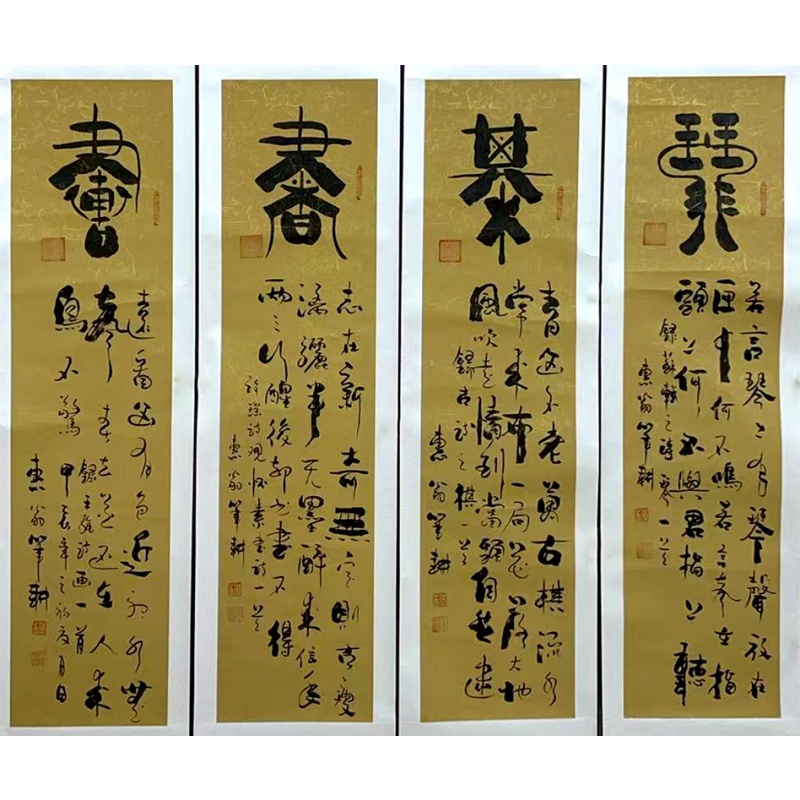 琴
若言琴上有琴聲放在
匣中何不鳴若言聲在指
頭上何不與君指上聽
錄蘇軾之詩琴一首
惠翁筆耕
棊
青山不老萬古棋流水
常来布一局花落大地
風吹走橋到當頭自然
錄古詩之棋一首
惠翁筆耕
書
志在新奇無定則古瘦
漓驪半无墨醉来信手
兩三行醒後却書書不得
許瑤詩觀懷素書詩一首
惠翁筆耕
畫
遠看山有色近聽水無
聲春去花還在人来
鳥不驚
錄王維詩畫一首
甲辰年之初夏月日
惠翁筆耕